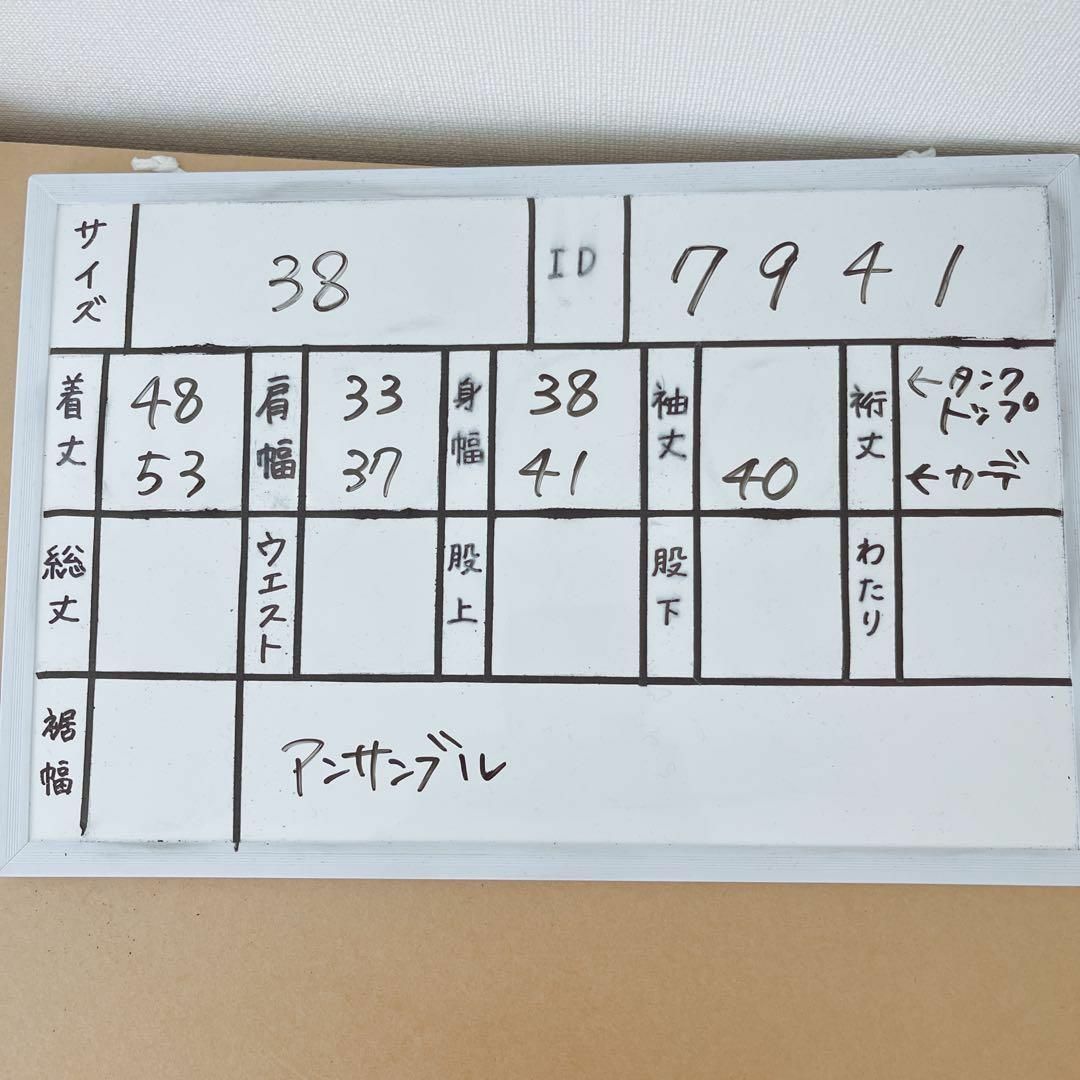 サイズ 38 ID 7941
着丈 48 肩幅 33 身幅 38 袖丈 裄丈 ←タンクトップ
53 37 41 40 ←カーデ
総丈 ウエスト 股上 股下 わたり
裾幅 アンサンブル